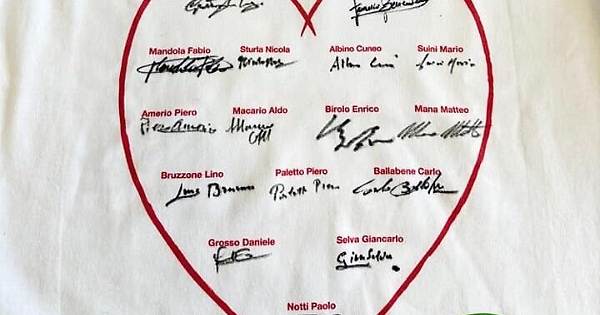 Mandola Fabio Sturla Nicola Albino Cuneo Suini Mario
Albino Cuneo Suini Mario
Amerio Piero Macario Aldo Birolo Enrico Mana Matteo
Piero Amerio Macario Mana Matteo
Bruzzone Lino Paletto Piero Ballabene Carlo
Lino Bruzzone Paletto Piero Carlo Ballabene
Grosso Daniele Selva Giancarlo
Notti Paolo